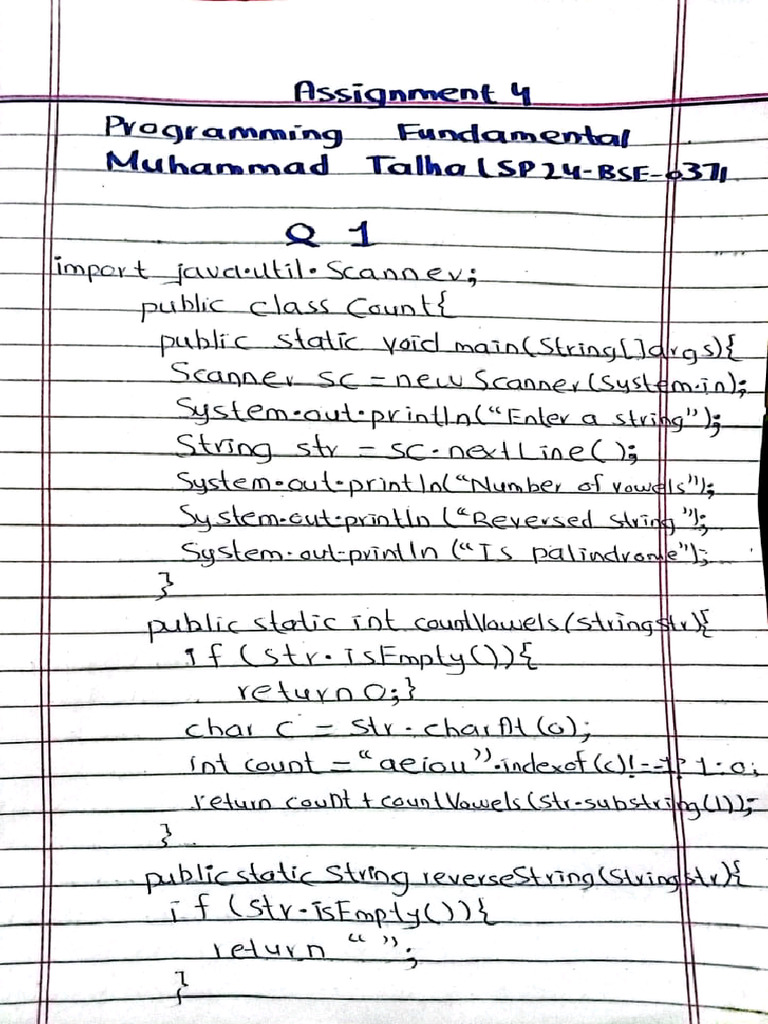 Assignment 4
Programming Fundamental
Muhammad Talha (SP24-BSE-037)
Q 1
import java.util.Scanner;
public class Count{
public static void main(String[]args){
Scanner sc = new Scanner(System.in);
System.out.println("Enter a string");
String str = sc.nextLine();
System.out.println("Number of vowels");
System.out.println ("Reversed string");
System.out.println ("Is palindrome");
}
public static int countVowels(String str){
if (str.isEmpty()){
return 0;}
char c = str.charAt(0);
int count = "aeiou".indexof(c)!=-1? 1:0;
return count + countVowels(str.substring(1));
}
public static String reverseString(String str){
if (str.isEmpty()){
return " ";
}